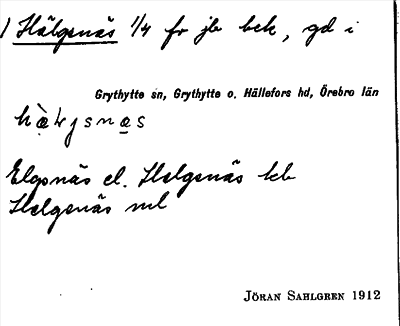 ) Hälgenäs 1/4 fr jb bek, gd i
Grythytte sn, Grythytte o. Hällefors hd, Örebro län
Elgsnäs el. Helgenäs
Helgenäs ml
JÖRAN SAHLGREN 1912